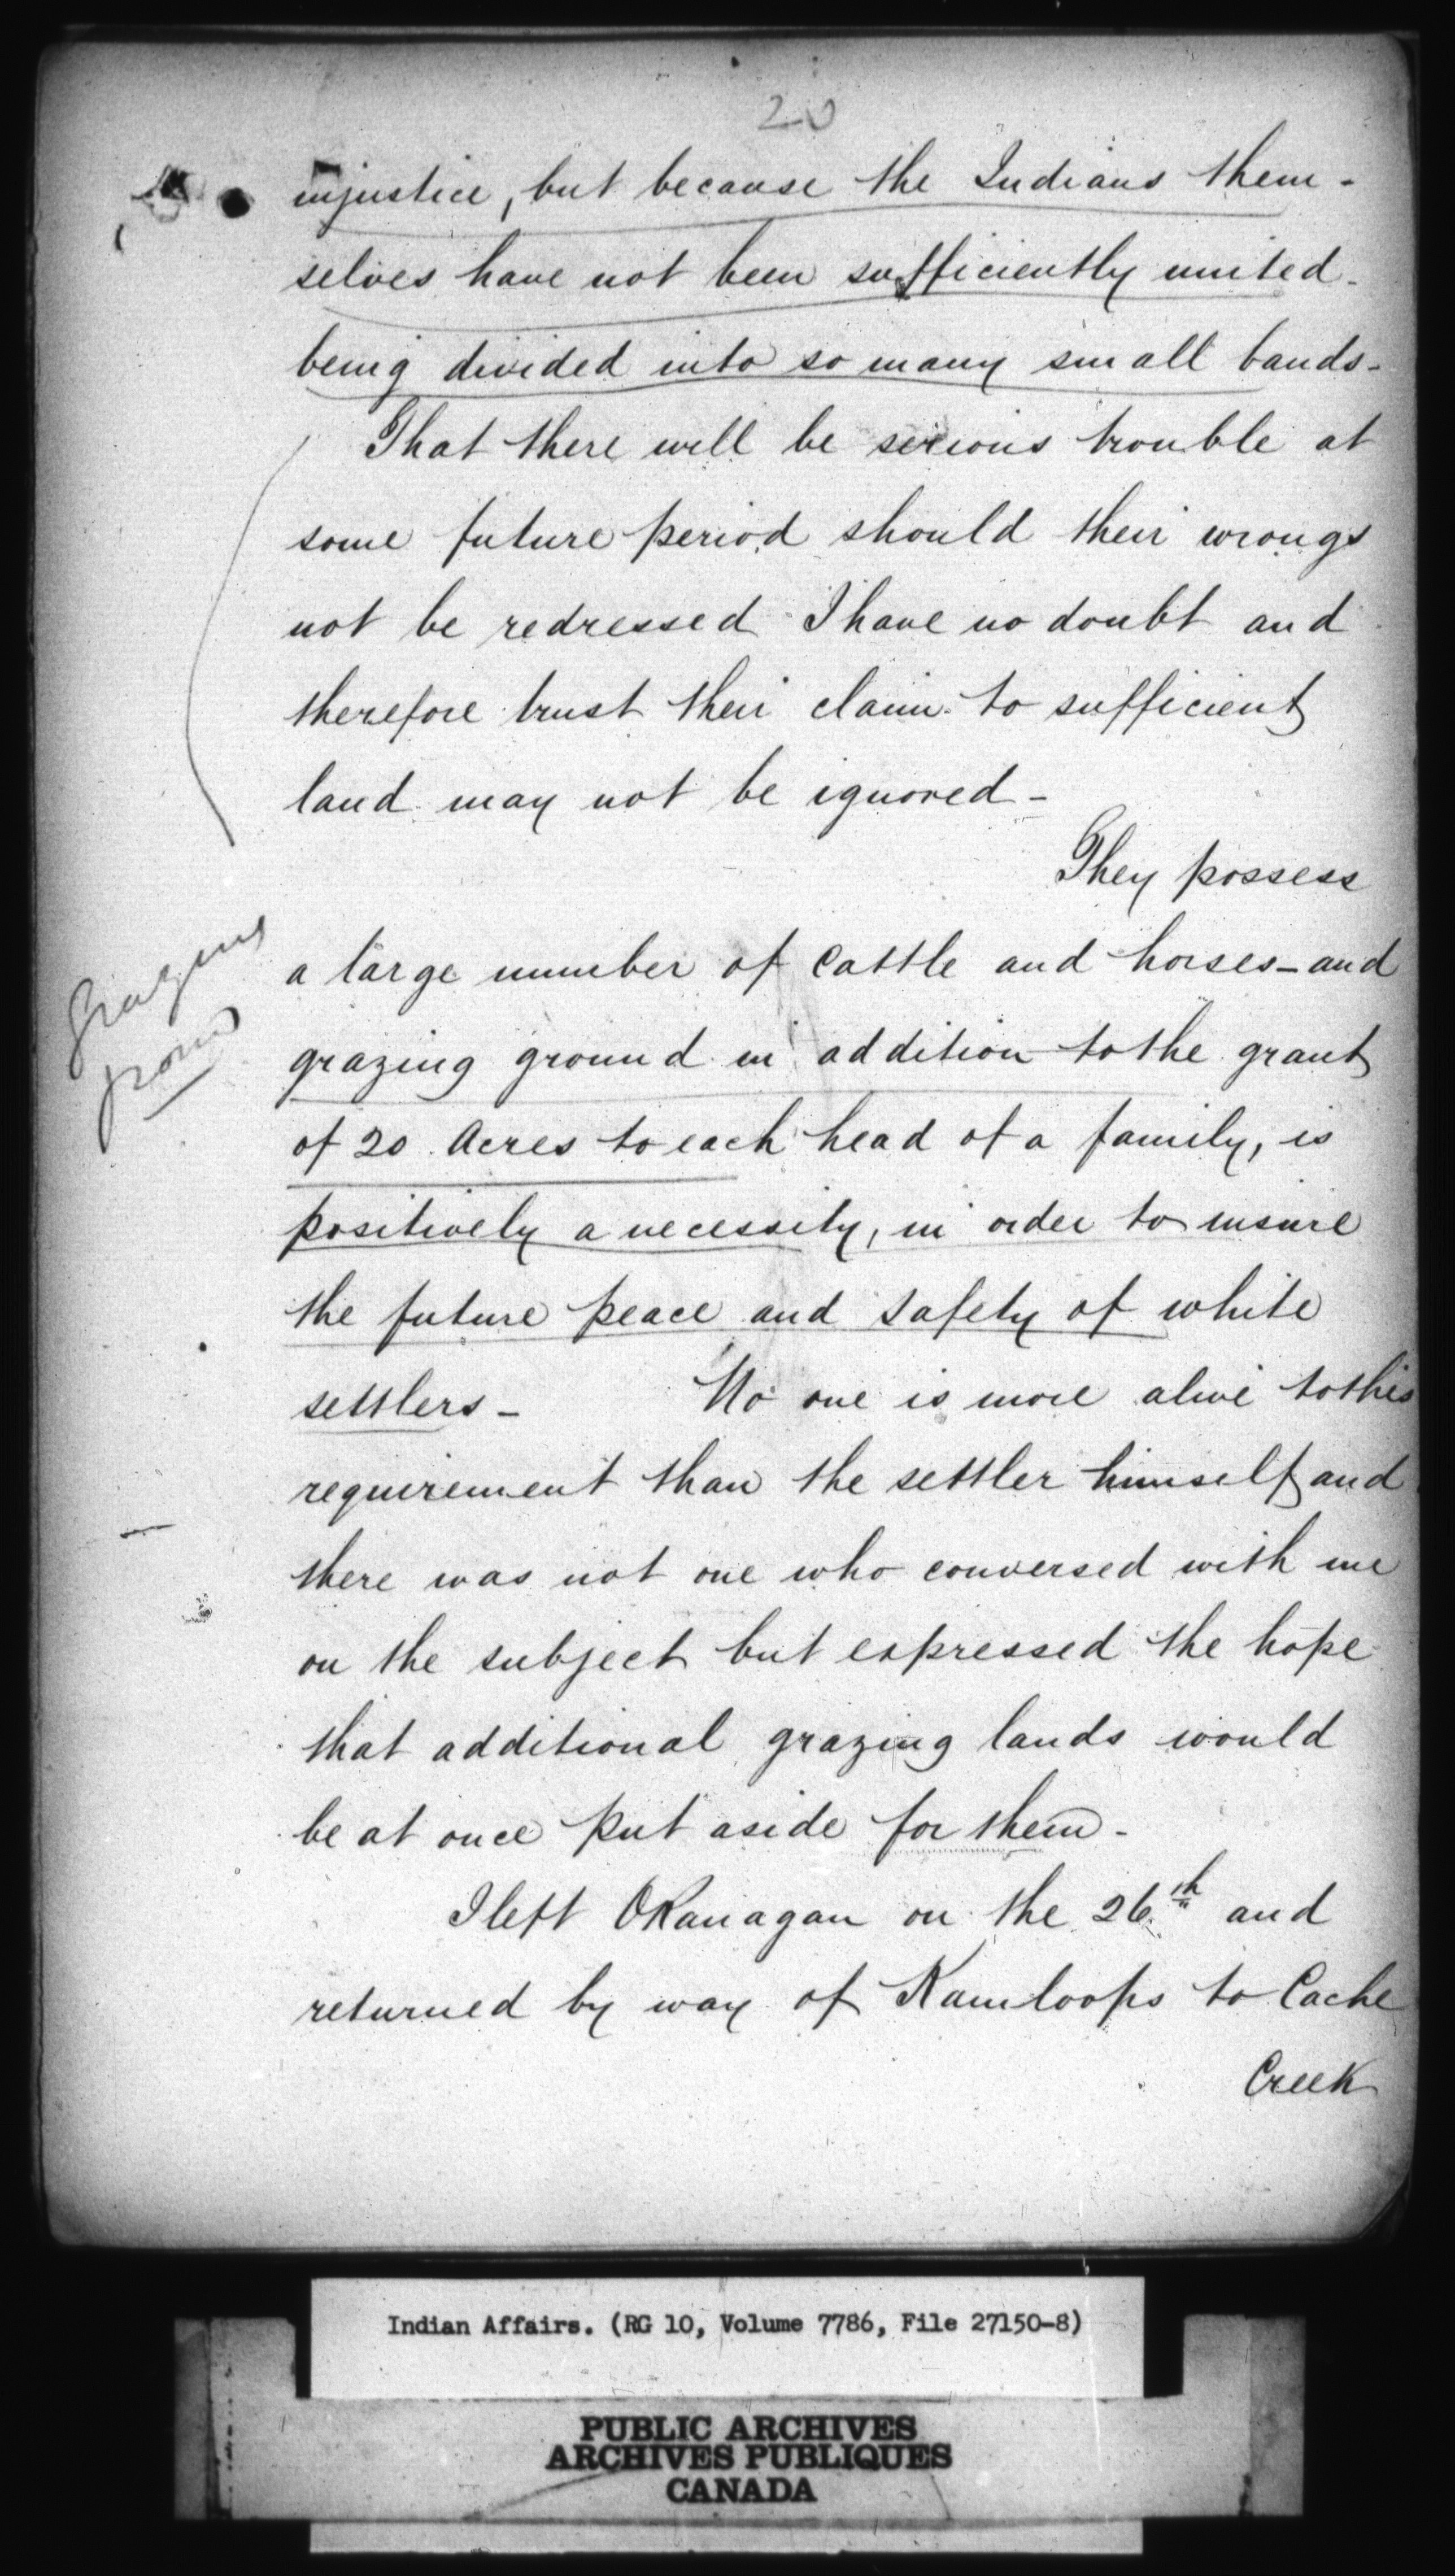 20
injustice, but because the Indians them-
selves have not been sufficiently united-
being divided into so many small bands-
That there will be serious trouble at
some future period should their wrongs
not be redressed I have no doubt and
therefore trust their claim to sufficient
land may not be ignored-
They possess
Grazing
a large number of Cattle and horses-and
grazing ground in addition to the grant
of 20 Acres to each head of a family, is
positively a necessity, in order to insure
the future peace and safety of white
settlers- No one is more alive to this
requirement than the settler himself and
there was not one who conversed with me
on the subject but expressed the hope
that additional grazing lands would
be at once put aside for them-
I left Okanagan on the 26th and
returned by way of Kamloops to Cache
Creek
Indian Affairs. (RG 10, Volume 7786, File 27150-8)
PUBLIC ARCHIVES
ARCHIVES PUBLIQUES
CANADA